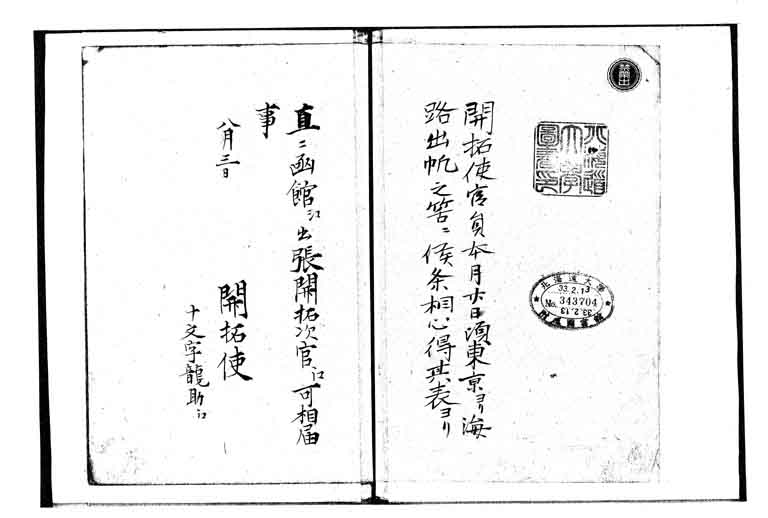 開拓使官員本月廿日頃東京ヨリ海
路出帆之筈ニ候条相心得其表ヨリ
北海道大學圖書印
北海道大学
33.2.13
No. 343704
33.2.13
附属図書館
直ニ函館江出張開拓次官江可相届
事
八月三日
開拓使
十文字龍助江